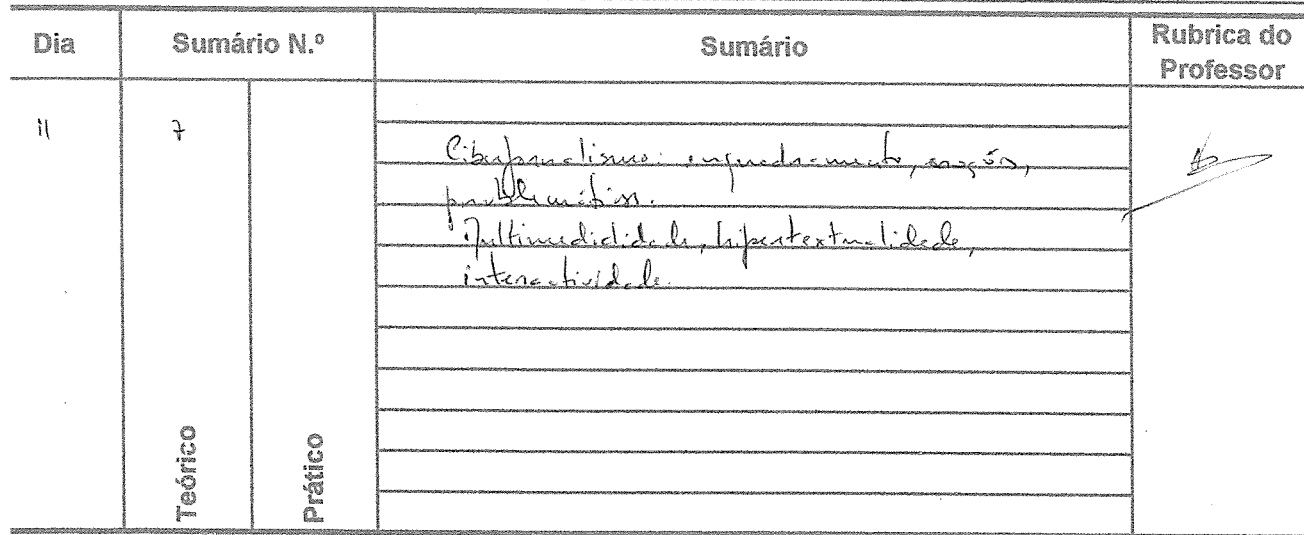 Dia Sumário N.º Sumário Rubrica do Professor
11 7
Ciberjornalismo: enquadramento, noções,
problemáticas.
Multimedialidade, hipertextualidade,
interactividade.
Teórico
Prático